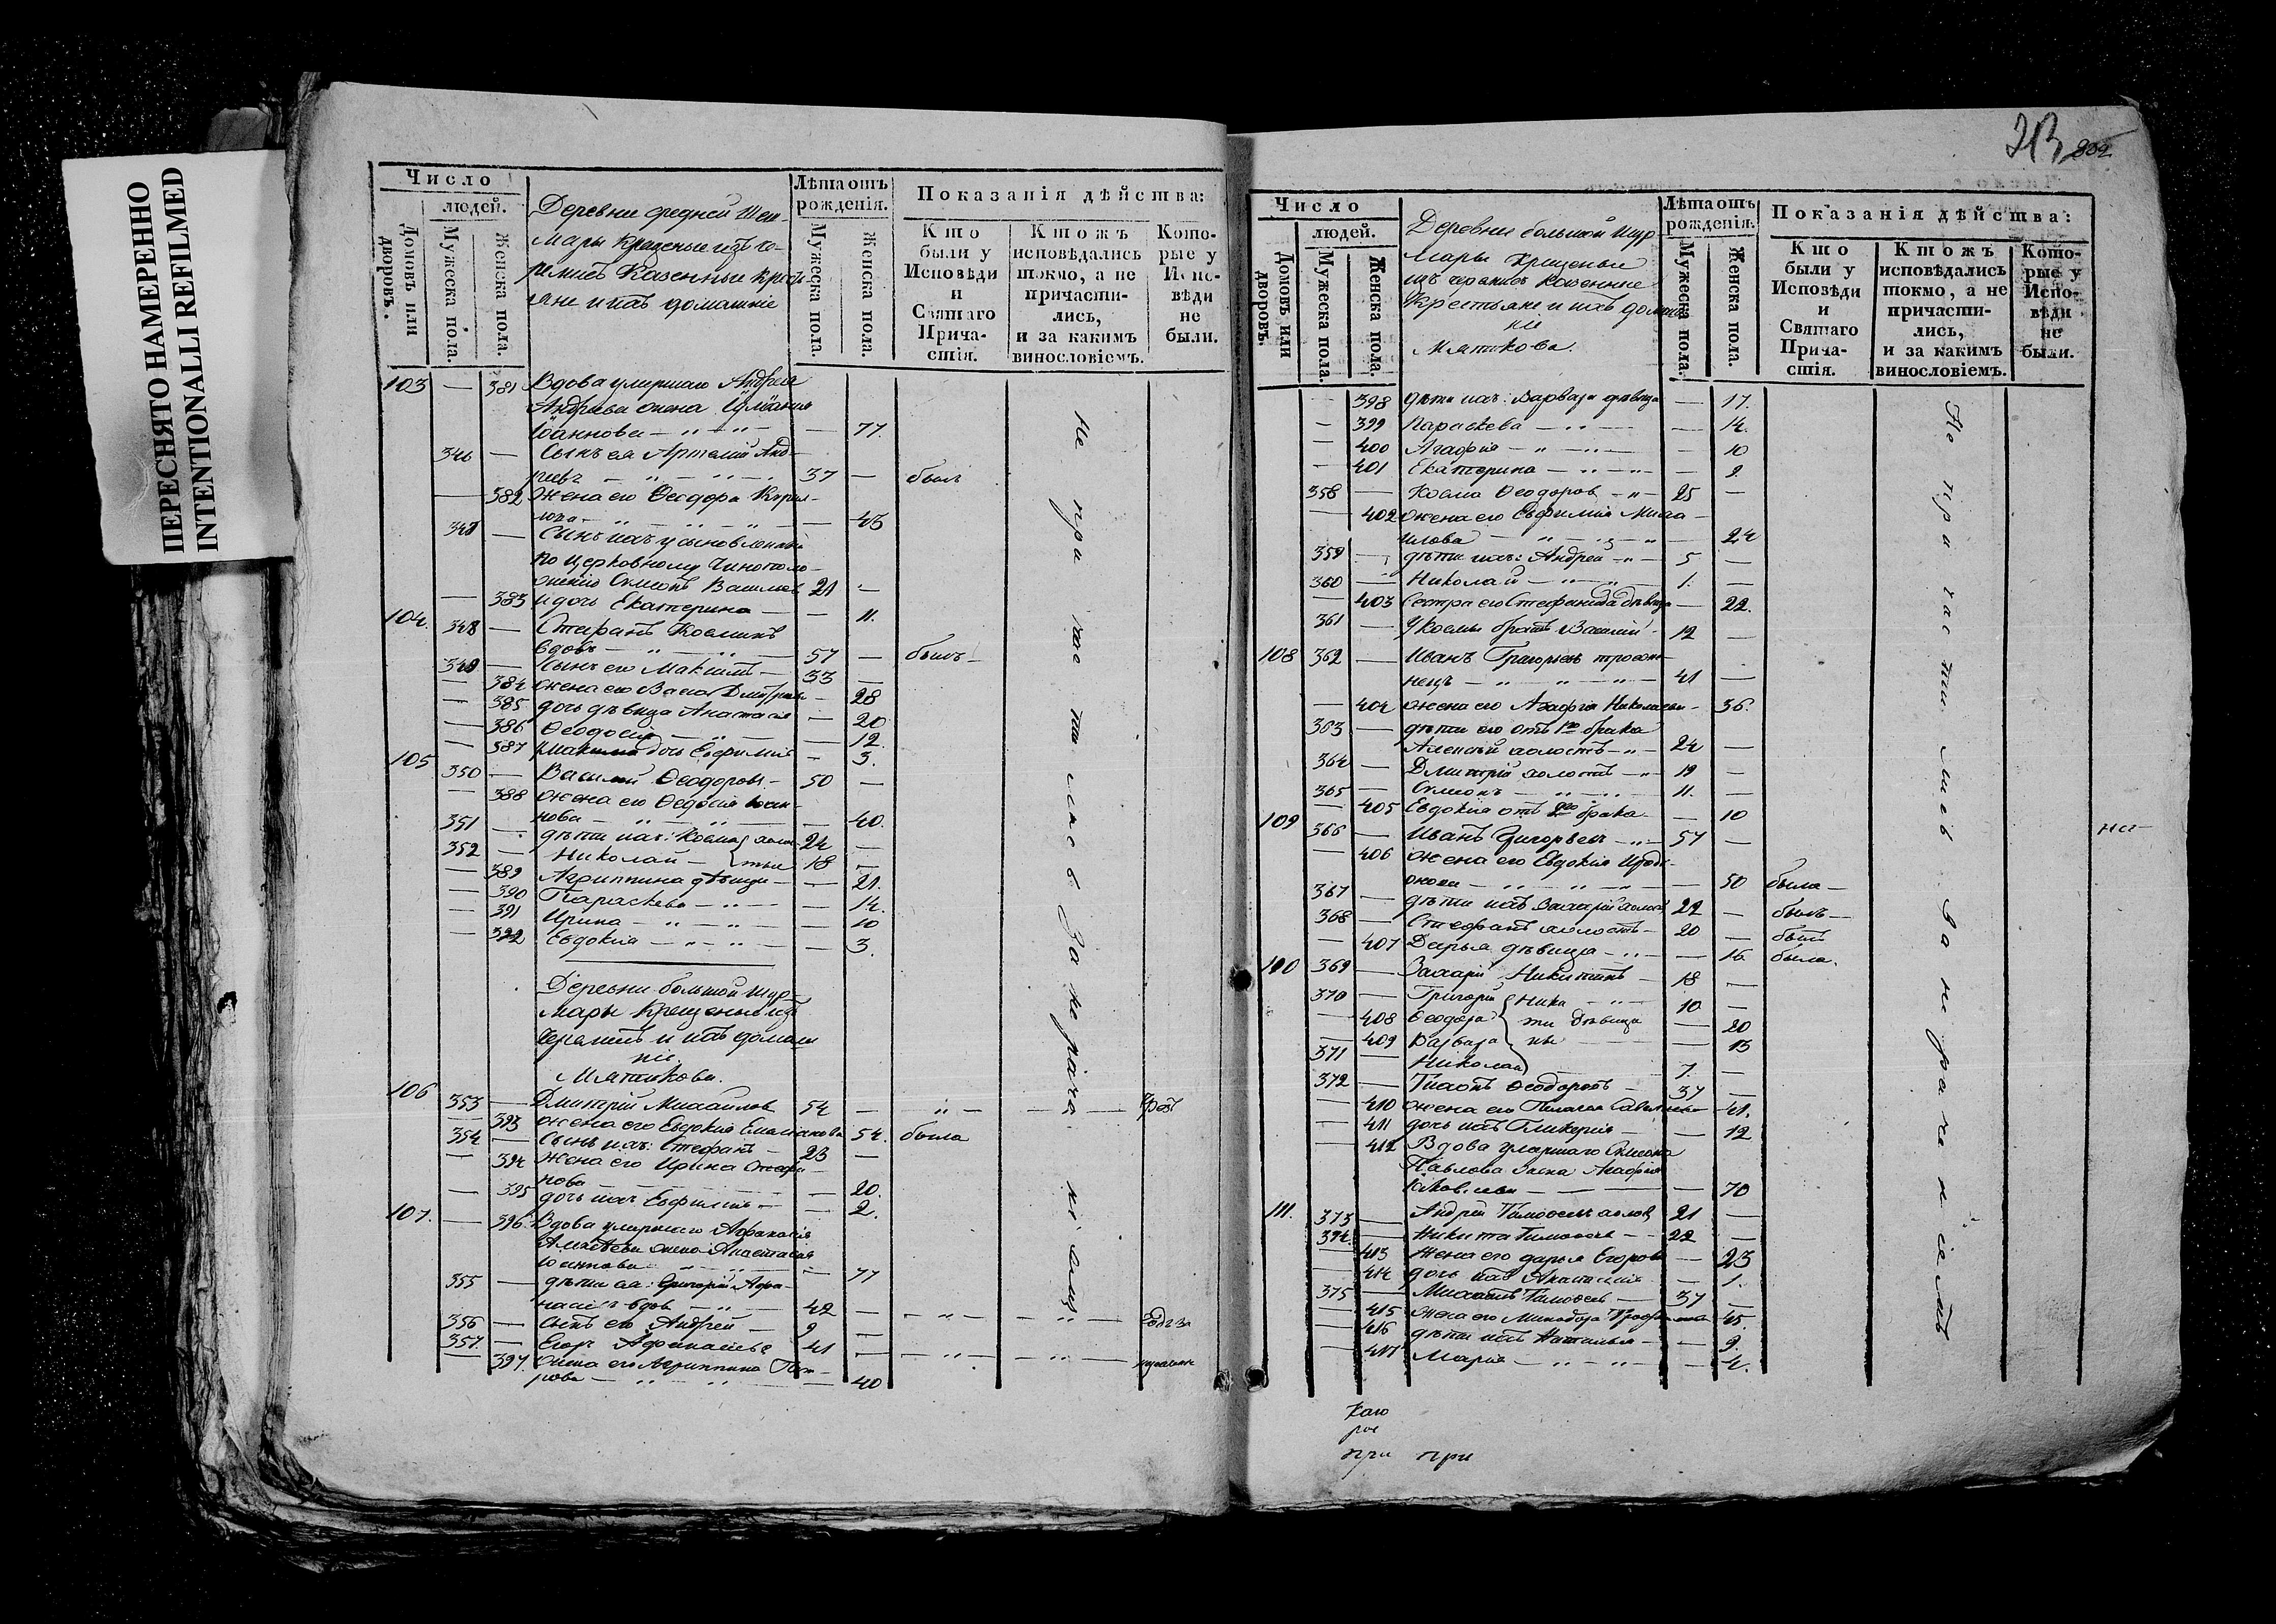 ПЕРЕСНЯТО НАМЕРЕННО
INTENTIONALLI REFILMED
Число
людей.
Домовъ или дворовъ.
Мужеска пола.
Женска пола.
Деревни средней
Мары Крещеные изъ че-
ремисъ Казенные кресть-
яне и ихъ домашніе
Лѣта отъ рожденія.
Мужеска пола.
Женска пола.
Показанія дѣйства:
Кто были у Исповѣди и Святаго Причастія.
Ктожъ исповѣдались токмо, а не причастились, и за какимъ винословіемъ.
Которые у Исповѣди не были.
103 — 381 Вдова умершаго Андрея
Андреева жена
Іоаннова — 77.
346 — Сынъ ея Артемій Анд-
реевъ — 37 — былъ
— 382 Жена его Ѳеодора Кирил-
лова — 43
347 — Сынъ ихъ усыновленный
по церковному чинополо-
женію Симеонъ Василіевъ 21 —
— 383 и дочь Екатерина — 11.
104. 348 — Стефанъ Козминъ
вдовъ — 57 — былъ —
349 — Сынъ его Максимъ — 33 —
— 384 жена его Васса Дмитріева — 28
— 385 дочь дѣвица Анастасія — 20
— 386 Ѳеодосія — 12.
— 387 Максима дочь Евфимія — 3.
105 350 — Василій Ѳеодоровъ — 50 —
— 388 жена его Ѳедосія Іоан-
нова — 40.
351 — дѣти ихъ: Козма холос- 24 —
352 — Николай — тые 18 —
— 389 Агриппина дѣвица — 21.
— 390 Параскева — 14.
— 391 Ирина — 10
— 392 Евдокія — 3.
Деревни большой Шур-
мары Крещеные изъ
черемисъ и ихъ домаш
ніе.
Мляткова.
106 353 — Дмитрій Михайловъ 54 —
— 393 жена его Евдокія Емельянова 54. была
354 — Сынъ ихъ: Стефанъ — 23 —
— 394 Жена его Ирина Стефа-
нова — 20.
— 395 дочь ихъ Евфимія — 2.
107. — 396 Вдова умершаго Афанасія
Алексѣева жена Анастасія
Іоаннова — 77
355 — дѣти ея: Григорій Афа-
насьевъ вдовъ — 42 —
356 — сынъ его Андрей — 9 —
357. — Егоръ Афанасьевъ 41 —
— 397. жена его Агриппина Пет-
рова — 40
Не причастились За нераченіемъ
213 802
Число
людей.
Домовъ или дворовъ.
Мужеска пола.
Женска пола.
Деревни большой Шур
мары Крещеные
изъ черемисъ казенные
Крестьяне и ихъ домаш
ніе
Мляткова.
Лѣта отъ рожденія.
Мужеска пола.
Женска пола.
Показанія дѣйства:
Кто были у Исповѣди и Святаго Причастія.
Ктожъ исповѣдались токмо, а не причастились, и за какимъ винословіемъ.
Которые у Исповѣди не были.
— 398 дѣти ихъ: Варвара дѣвица — 17.
— 399 Параскева — 14.
— 400 Агафія — 10
— 401 Екатерина — 2.
358 — Козма Ѳеодоровъ — 25 —
— 402 жена его Евфимія Миха-
илова — 24
359 — дѣти ихъ: Андрей — 5 —
360 — Николай — 1. —
— 403 Сестра его Стефанида дѣвица — 22.
361 — У Козмы братъ Василій — 12 —
108 362 — Иванъ Григорьевъ троеже-
нецъ — 41 —
— 404 жена его Агафія Николаева — 36.
363 — дѣти его отъ 1го брака
Алексѣй холостъ — 24 —
364 — Дмитрій холостъ — 19 —
365 — Симеонъ — 11. —
— 405 Евдокія отъ 2го брака — 10
109 366 — Иванъ Григорьевъ — 57 —
— 406 жена его Евдокія
— 50 была —
367 — дѣти ихъ Захарій холостъ 22 — былъ —
368 — Стефанъ холостъ — 20 — былъ
— 407 Дарья дѣвица — 16 была.
110 369 — Захарій Никитинъ — 18 —
370 — Григорій Ники 10 —
— 408 Ѳеодора ти дѣвица — 20
— 409 Варвара ны — 13
371 — Николай 7. —
372 — Ѳеодоровъ — 37 —
— 410 жена его Пелагея Савельева — 41.
— 411 дочь ихъ Гликерія — 12
— 412 Вдова умершаго Симеона
Павлова жена Агафія
Яковлева — 70
111. 373 — Андрей Тимофеевъ холос 21 —
374. — Никита Тимофеевъ — 22 —
— 413 Жена его Дарья Егорова — 23
— 414 дочь ихъ Анастасія — 1.
375 — Михаилъ Тимофеевъ — 37 —
— 415 жена его Минодора — 45.
— 416 дѣти ихъ Наталья — 9.
— 417 Марія — 4.
Не причастились За нераченіемъ
при при